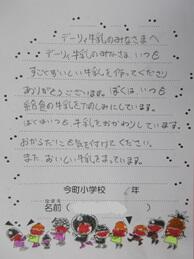 デーリィ牛乳のみなさまへ
デーリィ牛乳のみなさま、いつも
すごくおいしい牛乳を作ってくださり
ありがとうございます。ぼくは、いつも
給食の牛乳をたのしみにしています。
ぼくはいつも牛乳をおかわりしています。
おからだにも気を付けてください。
また、おいしい牛乳をまっています。
今町小学校 年
名前（